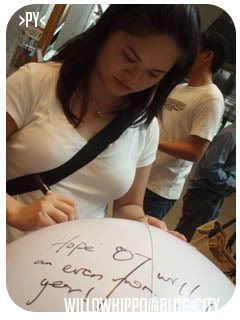 >PY<
Hope '07 will
an even
year!
WILLOWHIPPO@BLOG-CITY